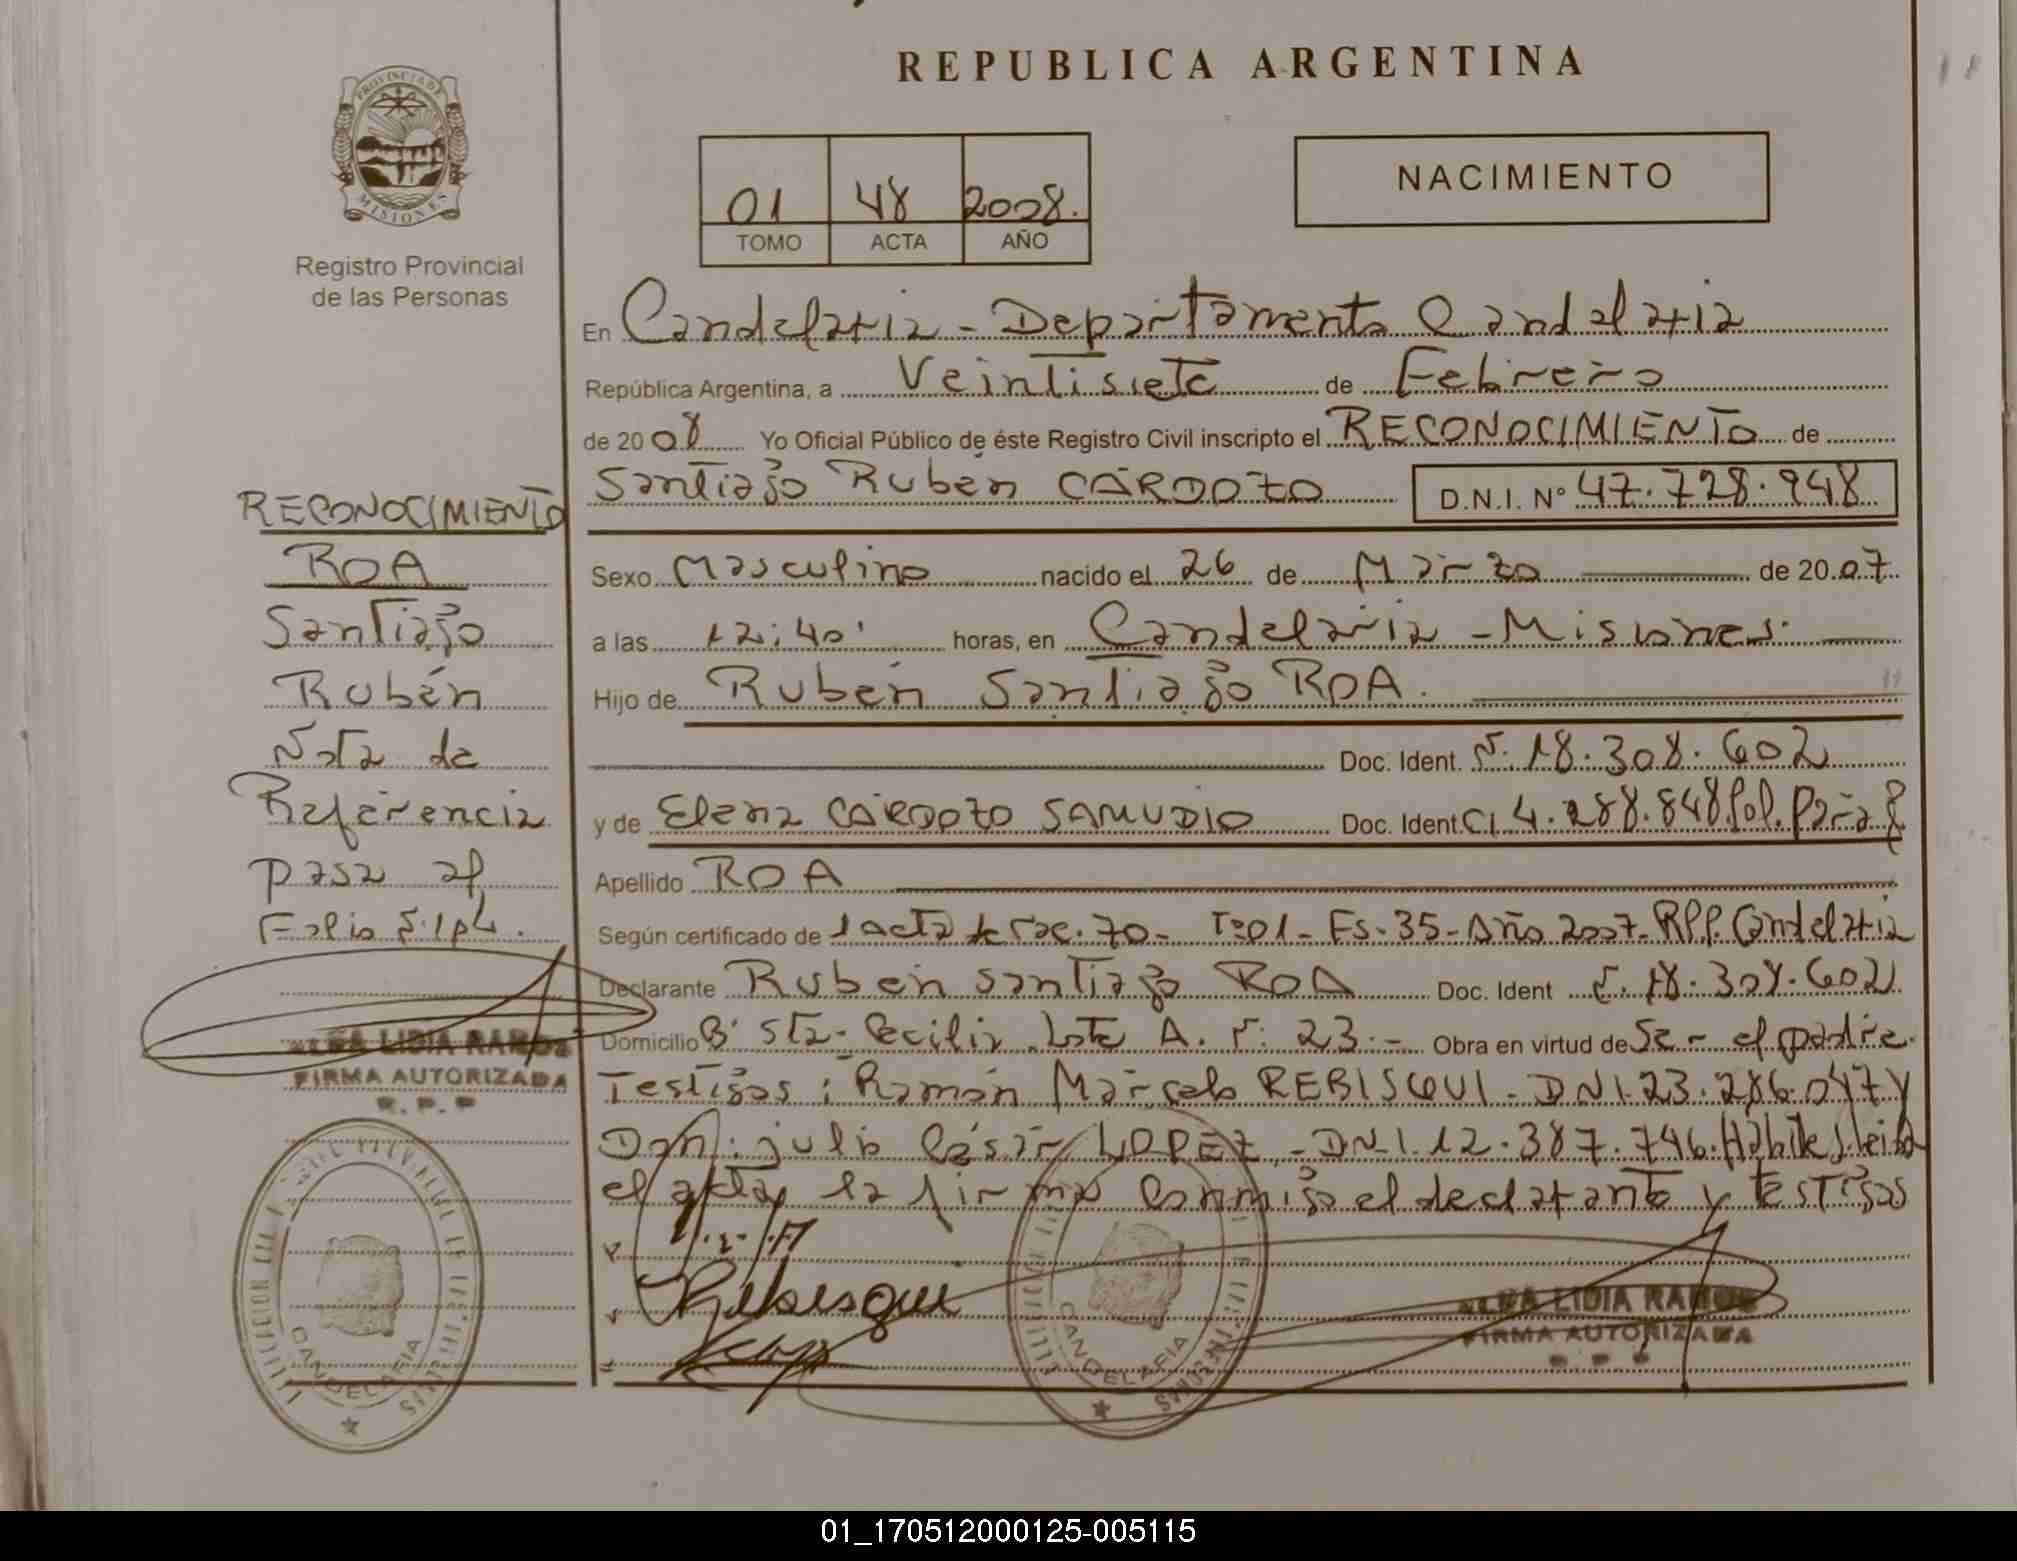 REPUBLICA ARGENTINA
PROVINCIA DE MISIONES
Registro Provincial
de las Personas
01 48 2008.
TOMO ACTA AÑO
NACIMIENTO
En Candelaria - Departamento Candelaria
República Argentina, a Veintisiete de Febrero
de 2008 Yo Oficial Público de éste Registro Civil inscripto el RECONOCIMIENTO de
Santiago Rubén CARDOZO D.N.I. Nº 47.728.948
Sexo Masculino nacido el 26 de Marzo de 2007
a las 12:40' horas, en Candelaria - Misiones.
Hijo de Rubén Santiago ROA.
Doc. Ident. Nº 18.308.602
y de Elena CARDOZO SAMUDIO Doc. Ident CI 4.288.848 Pol. Parag
Apellido ROA
Según certificado de 1 acta de rec. 70 - Tº 01 - Fs. 35 - Año 2007 - RPP. Candelaria
Declarante Rubén Santiago ROA Doc. Ident Nº 18.308.602
Domicilio Bº Sta. Cecilia Lote A. Nº 23.- Obra en virtud de Ser el padre.
Testigos: Ramón Marcelo REBISQUI - DNI. 23.286.047 y
Don: Julio César LOPEZ - DNI. 12.387.746. Hábiles leída
el acta, la firman conmigo el declarante y testigos
RECONOCIMIENTO
ROA
Santiago
Rubén
Nota de
Referencia
pasa al
Folio
ALBA LIDIA RAMOS
FIRMA AUTORIZADA
R. P. P
CANDELARIA
Rebisqui
CANDELARIA
MISIONES
ALBA LIDIA RAMOS
FIRMA AUTORIZADA
01_170512000125-005115